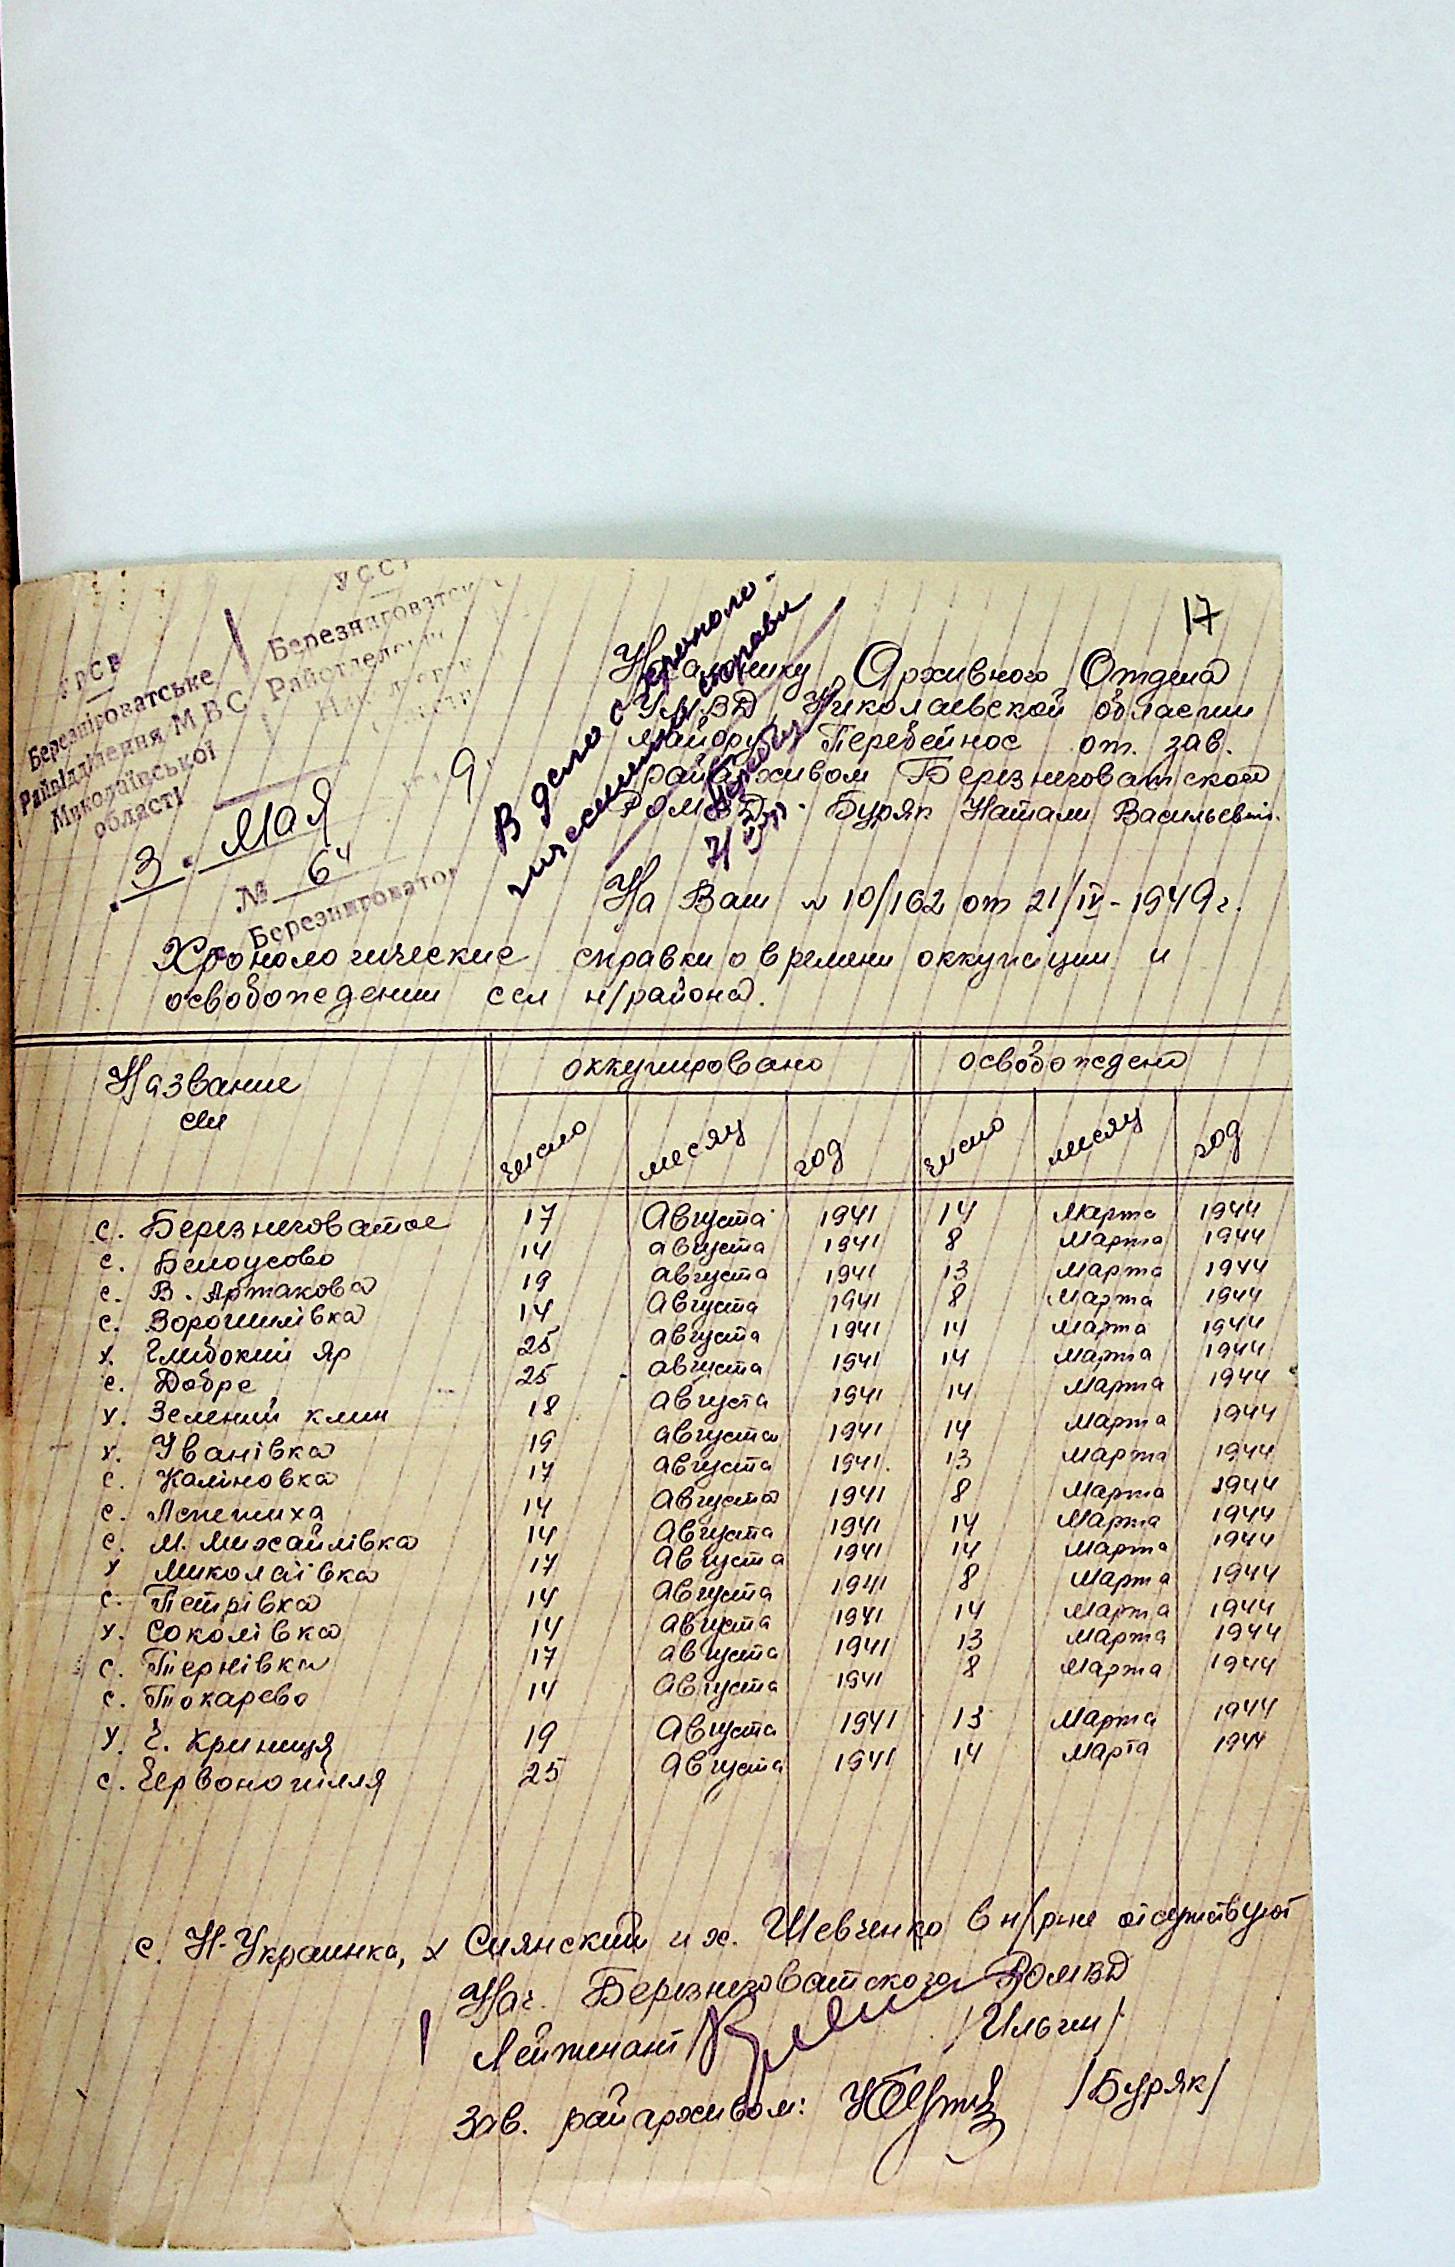 17
УРСР
Березніговатське
Райвідділення МВС
Миколаївської
області
УССР
Березнеговатск
Райотделение
3. Мая 9
№ 64
Березниговатое
В дело с хроноло-
гическими справками
Начальнику Архивного Отдела
УМВД Николаевской области
майору Перебейнос от зав.
райархивом Березнеговатского
РОМВД. Буряк Натали Васильевны.
На Ваш № 10/162 от 21/IV-1949 г.
Хронологические справки о времени оккупации и
освобождении сел н/района.
Название сел
оккупировано освобождено
число месяц год число месяц год
с. Березнеговатое 17 Августа 1941 14 Марта 1944
с. Белоусово 14 августа 1941 8 Марта 1944
с. В. Артакова 19 августа 1941 13 Марта 1944
с. Ворошилівка 14 Августа 1941 8 Марта 1944
х. Глибокий Яр 25 августа 1941 14 Марта 1944
с. Добре 25 августа 1941 14 Марта 1944
х. Зелений клин 18 Августа 1941 14 Марта 1944
х. Іванівка 19 августа 1941 14 Марта 1944
с. Каліновка 17 августа 1941 13 Марта 1944
с. Лепетиха 14 Августа 1941 8 Марта 1944
с. М. Михайлівка 14 Августа 1941 14 Марта 1944
х Миколаївка 17 Августа 1941 14 Марта 1944
с. Петрівка 14 Августа 1941 8 Марта 1944
х. Соколівка 14 августа 1941 14 Марта 1944
с. Тернівка 17 августа 1941 13 Марта 1944
с. Токарево 14 Августа 1941 8 Марта 1944
х. Ч. Криниця 19 Августа 1941 13 Марта 1944
с. Червонопілля 25 Августа 1941 14 Марта 1944
с. Н-Украинка, х Слянский и х. Шевченко в н/р-не отсутствуют
Нач. Березнеговатского РОМВД
Лейтенант /Ильин/
Зав. райархивом: /Буряк/